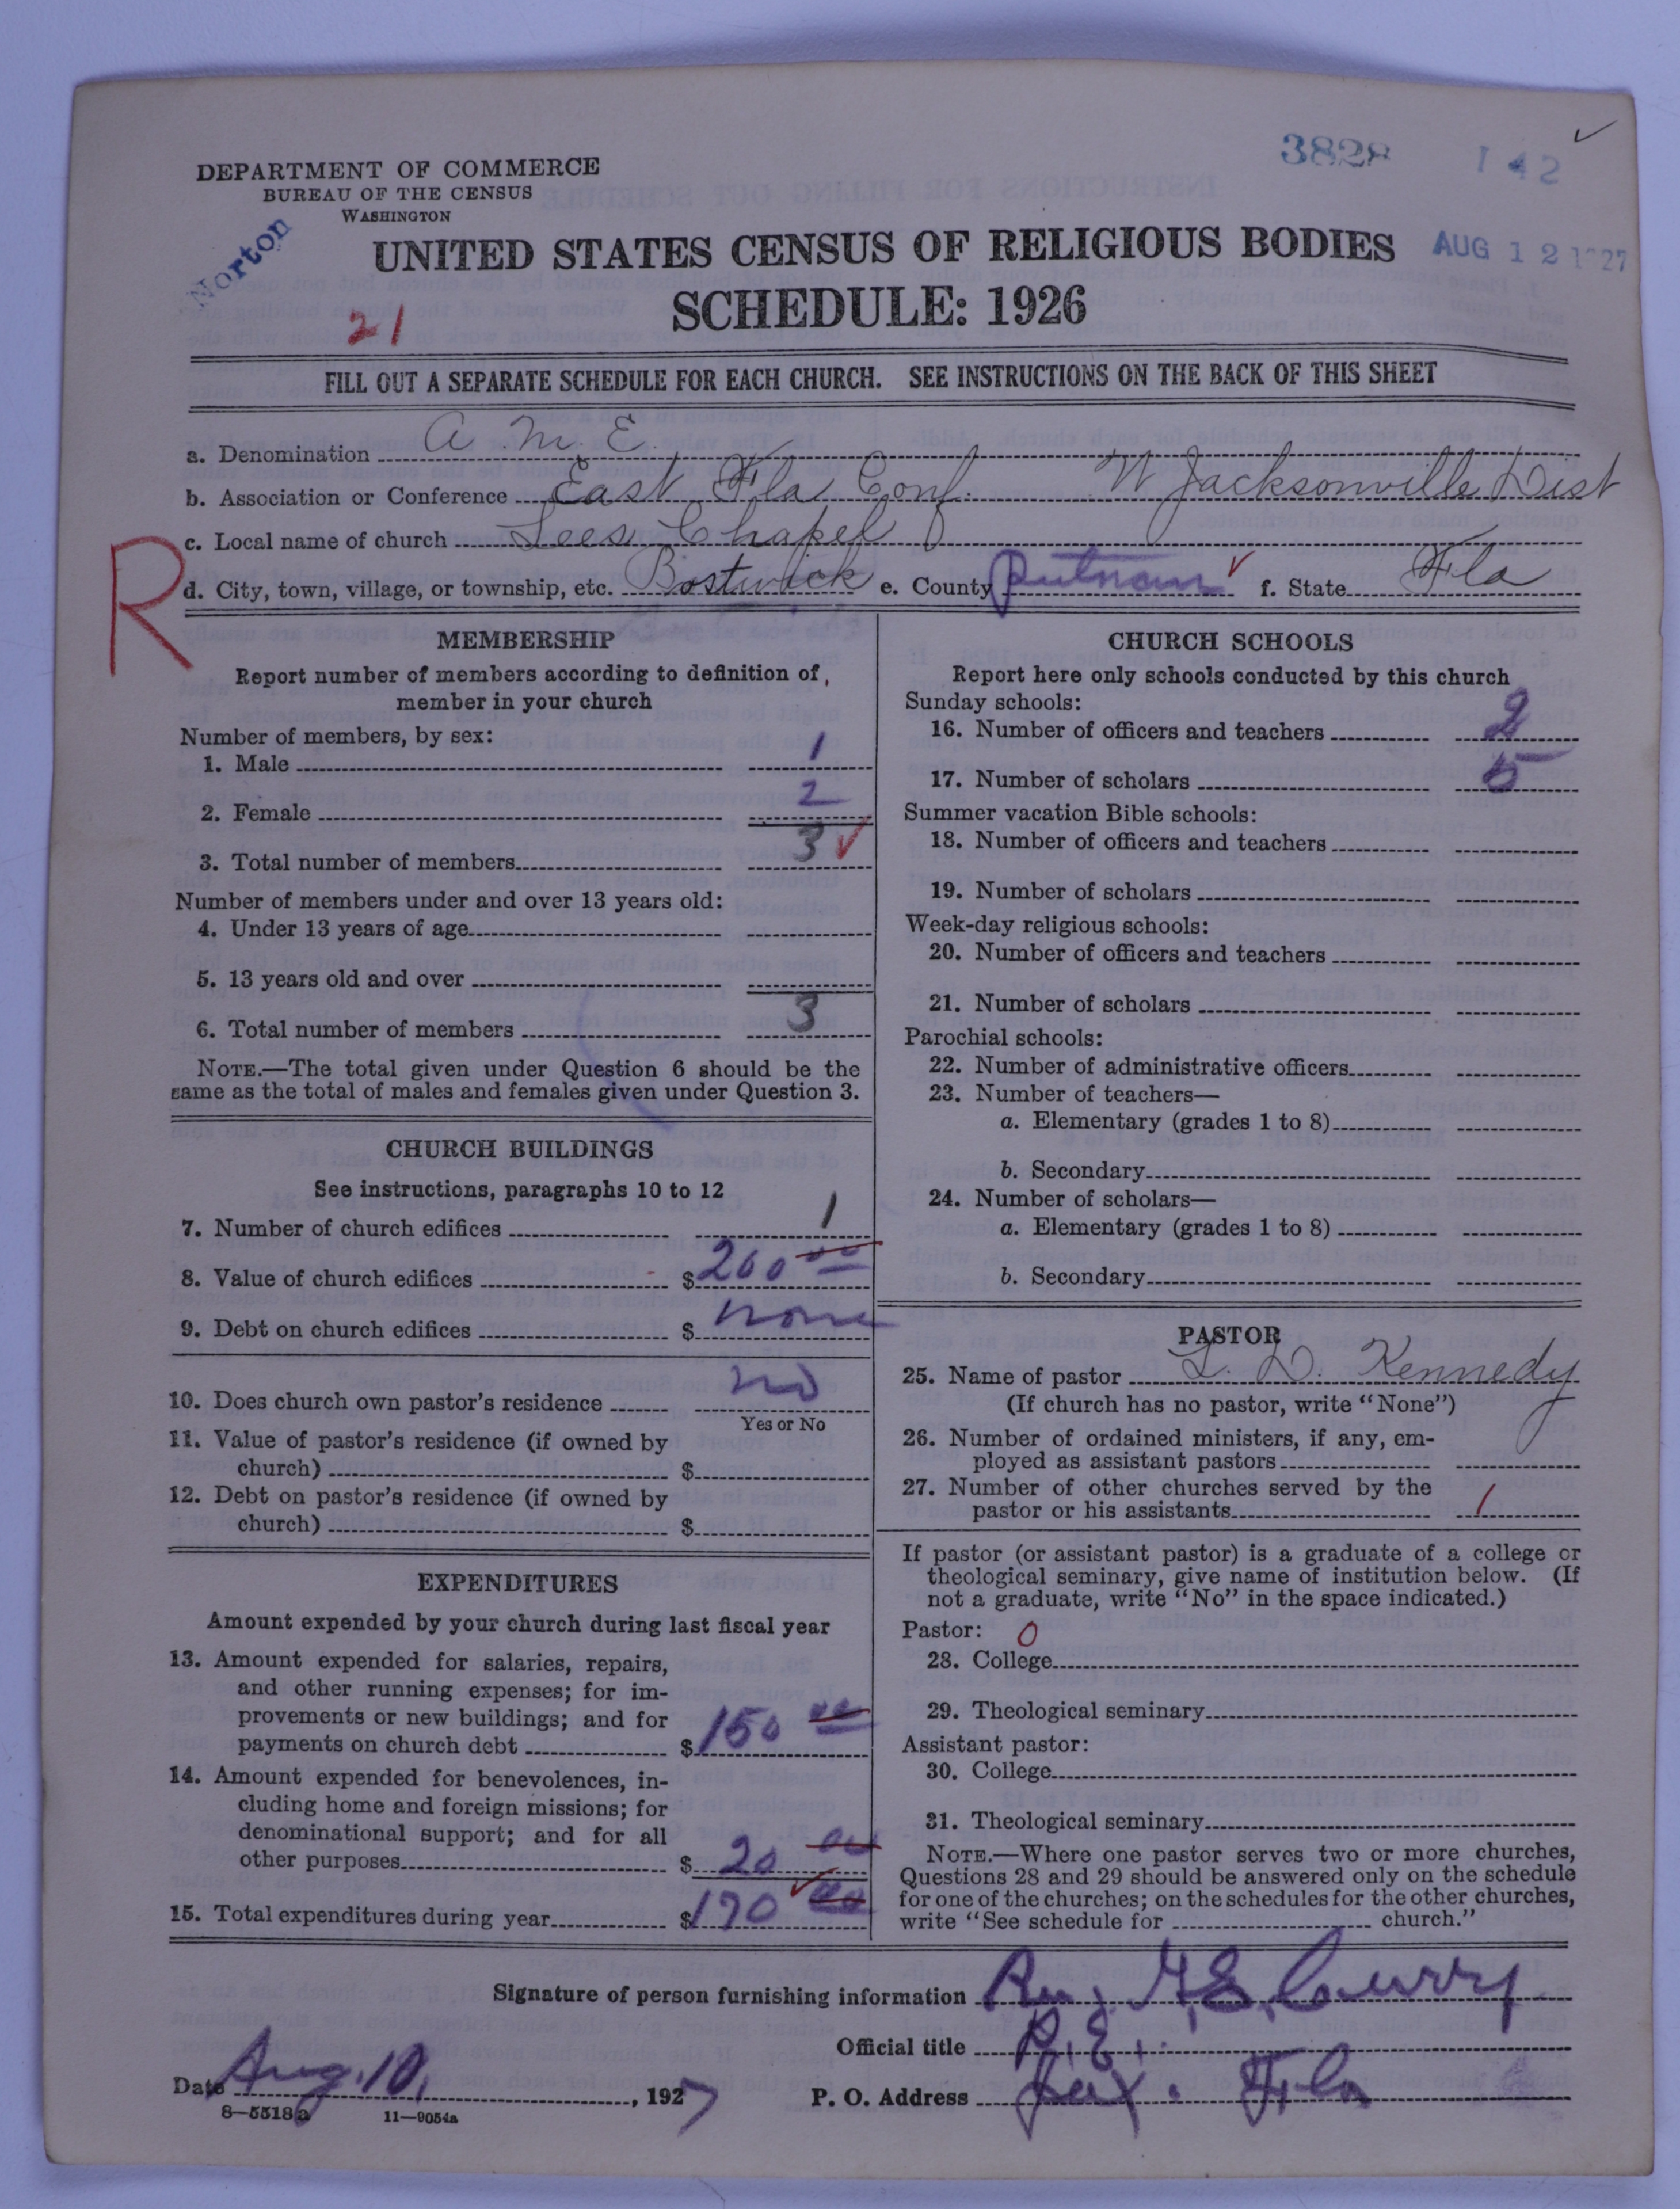 3828 142
DEPARTMENT OF COMMERCE
BUREAU OF THE CENSUS
WASHINGTON
Norton
UNITED STATES CENSUS OF RELIGIOUS BODIES
AUG 12 1927
SCHEDULE: 1926
21
FILL OUT A SEPARATE SCHEDULE FOR EACH CHURCH. SEE INSTRUCTIONS ON THE BACK OF THIS SHEET
a. Denomination A M E
b. Association or Conference East Fla Conf. W Jacksonville Dist
c. Local name of church Lees Chapel
R
d. City, town, village, or township, etc. Bostwick e. County Putnam f. State Fla
MEMBERSHIP
Report number of members according to definition of
member in your church
Number of members, by sex:
1. Male 1
2. Female 2
3. Total number of members 3
Number of members under and over 13 years old:
4. Under 13 years of age
5. 13 years old and over
6. Total number of members 3
NOTE.—The total given under Question 6 should be the
same as the total of males and females given under Question 3.
CHURCH BUILDINGS
See instructions, paragraphs 10 to 12
7. Number of church edifices 1
8. Value of church edifices $ 200 00
9. Debt on church edifices $ none
10. Does church own pastor's residence no
Yes or No
11. Value of pastor's residence (if owned by
church) $
12. Debt on pastor's residence (if owned by
church) $
EXPENDITURES
Amount expended by your church during last fiscal year
13. Amount expended for salaries, repairs,
and other running expenses; for im-
provements or new buildings; and for
payments on church debt $ 150 00
14. Amount expended for benevolences, in-
cluding home and foreign missions; for
denominational support; and for all
other purposes $ 20 00
15. Total expenditures during year $ 170 00
CHURCH SCHOOLS
Report here only schools conducted by this church
Sunday schools:
16. Number of officers and teachers 2
17. Number of scholars 5
Summer vacation Bible schools:
18. Number of officers and teachers
19. Number of scholars
Week-day religious schools:
20. Number of officers and teachers
21. Number of scholars
Parochial schools:
22. Number of administrative officers
23. Number of teachers—
a. Elementary (grades 1 to 8)
b. Secondary
24. Number of scholars—
a. Elementary (grades 1 to 8)
b. Secondary
PASTOR
25. Name of pastor L. D. Kennedy
(If church has no pastor, write "None")
26. Number of ordained ministers, if any, em-
ployed as assistant pastors
27. Number of other churches served by the
pastor or his assistants 1
If pastor (or assistant pastor) is a graduate of a college or
theological seminary, give name of institution below. (If
not a graduate, write "No" in the space indicated.)
Pastor: 0
28. College
29. Theological seminary
Assistant pastor:
30. College
31. Theological seminary
NOTE.—Where one pastor serves two or more churches,
Questions 28 and 29 should be answered only on the schedule
for one of the churches; on the schedules for the other churches,
write "See schedule for church."
Signature of person furnishing information Rev. H. E. Curry
Official title P. E.
Date Aug. 10, 1927 P. O. Address Jax. Fla
8—5518a 11—9054a